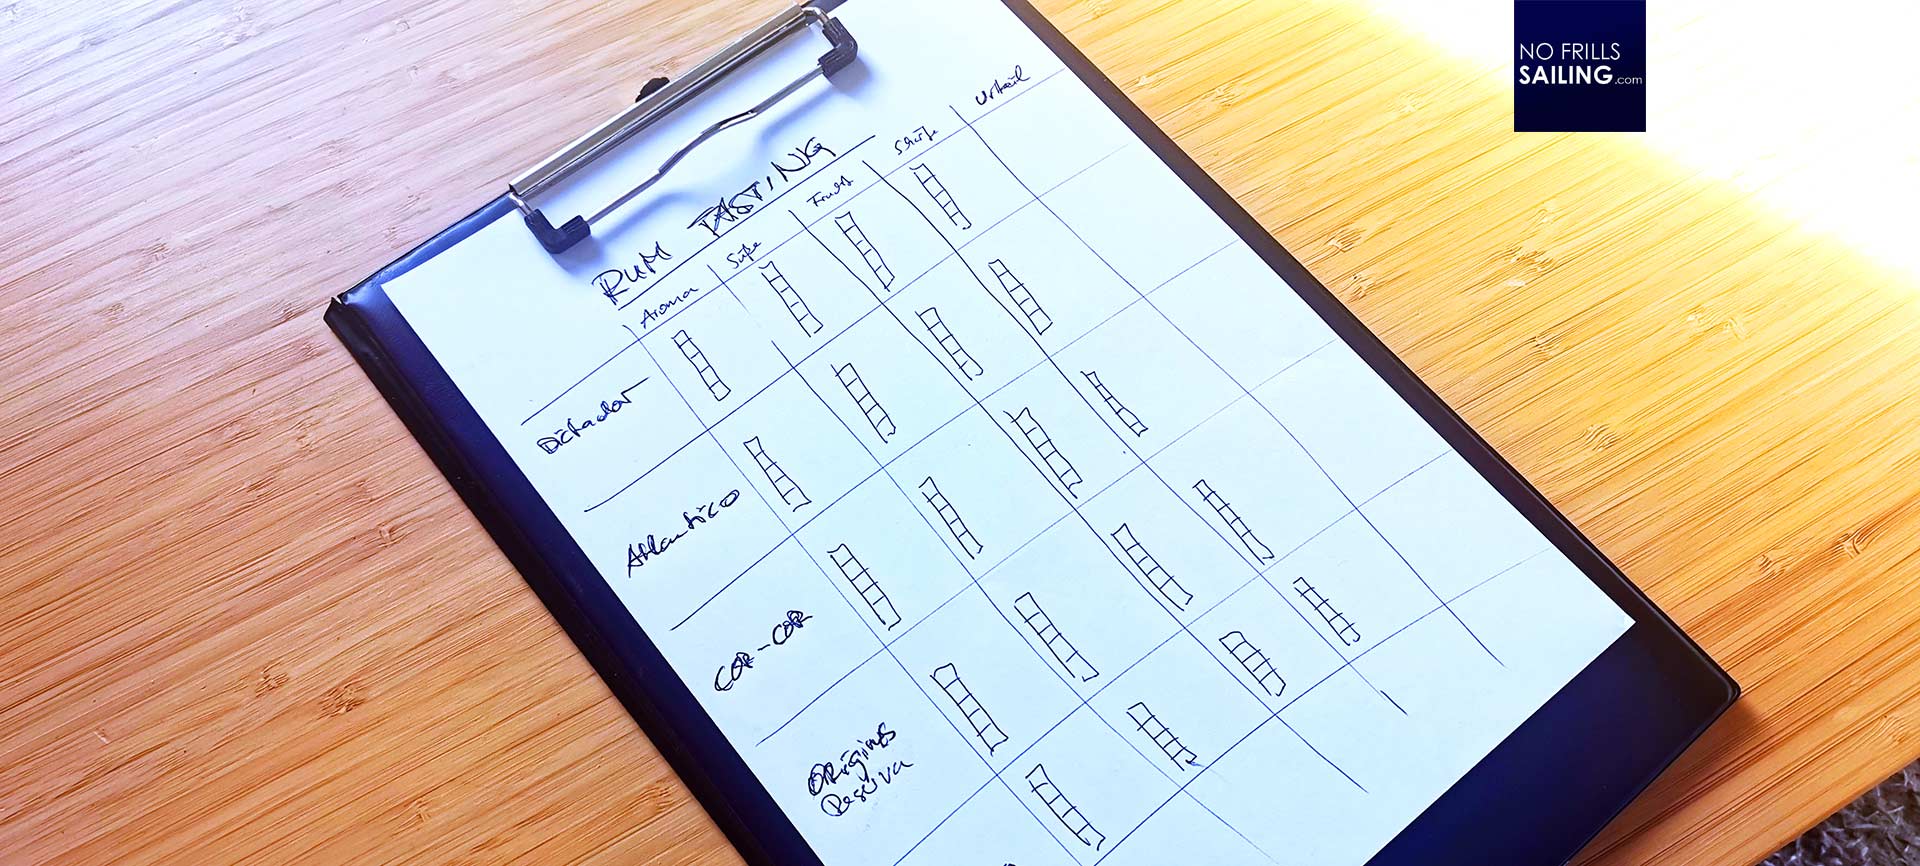 NO FRILLS
SAILING.com
RUM TASTING
Aroma Süße Frucht Schärfe Urteil
Dictador
Atlantico
COR-COR
ORiginES
Reserva